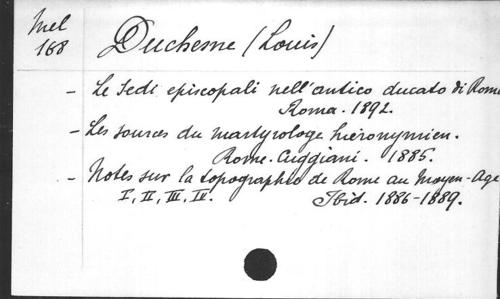 Mel
168
Duchesne (Louis)
- Le Sedi episcopali nell'antico ducato di Roma
Roma. 1892.
- Les sources du martyrologe hiéronymien.
Rome. Cuggiani. 1885.
- Notes sur la topographie de Rome au Moyen-Age
I, II, III, IV. Ibid. 1886-1889.